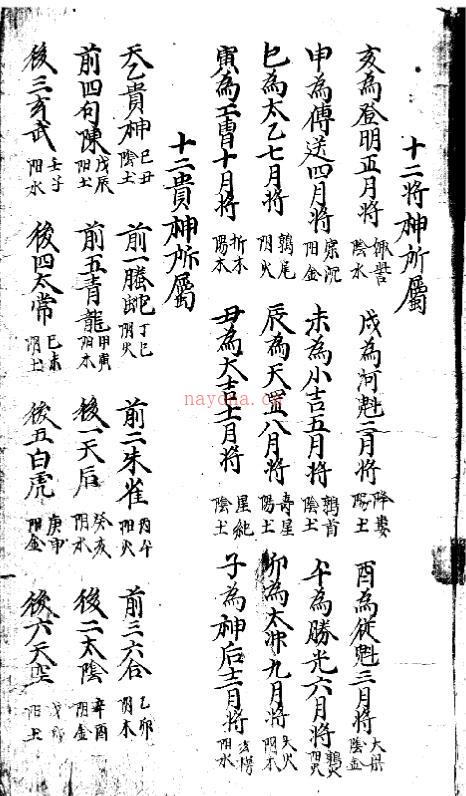 十二将神所屬
亥為登明正月将 娵訾 陰水 戌為河魁二月将 降婁 陽土 酉為従魁三月将 大梁 陰金
申為傳送四月将 寔沉 阳金 未為小吉五月将 鶉首 陰土 午為勝光六月将 鶉火 阳火
巳為太乙七月将 鶉尾 阴火 辰為天罡八月将 壽星 陽土 卯為太冲九月将 大火 阴木
寅為工曹十月将 析木 陽木 丑為大吉十一月将 星紀 陰土 子為神后十二月将 阳水
十二貴神所屬
天乙貴神 己丑 陰土 前一螣蛇 丁巳 阴火 前二朱雀 丙午 阳火 前三六合 乙卯 阴木
前四勾陳 戊辰 阳土 前五青龍 甲寅 阳木 後一天后 癸亥 阴水 後二太陰 辛酉 阴金
後三玄武 壬子 阳水 後四太常 己未 阴土 後五白虎 庚申 阳金 後六天空 阳土